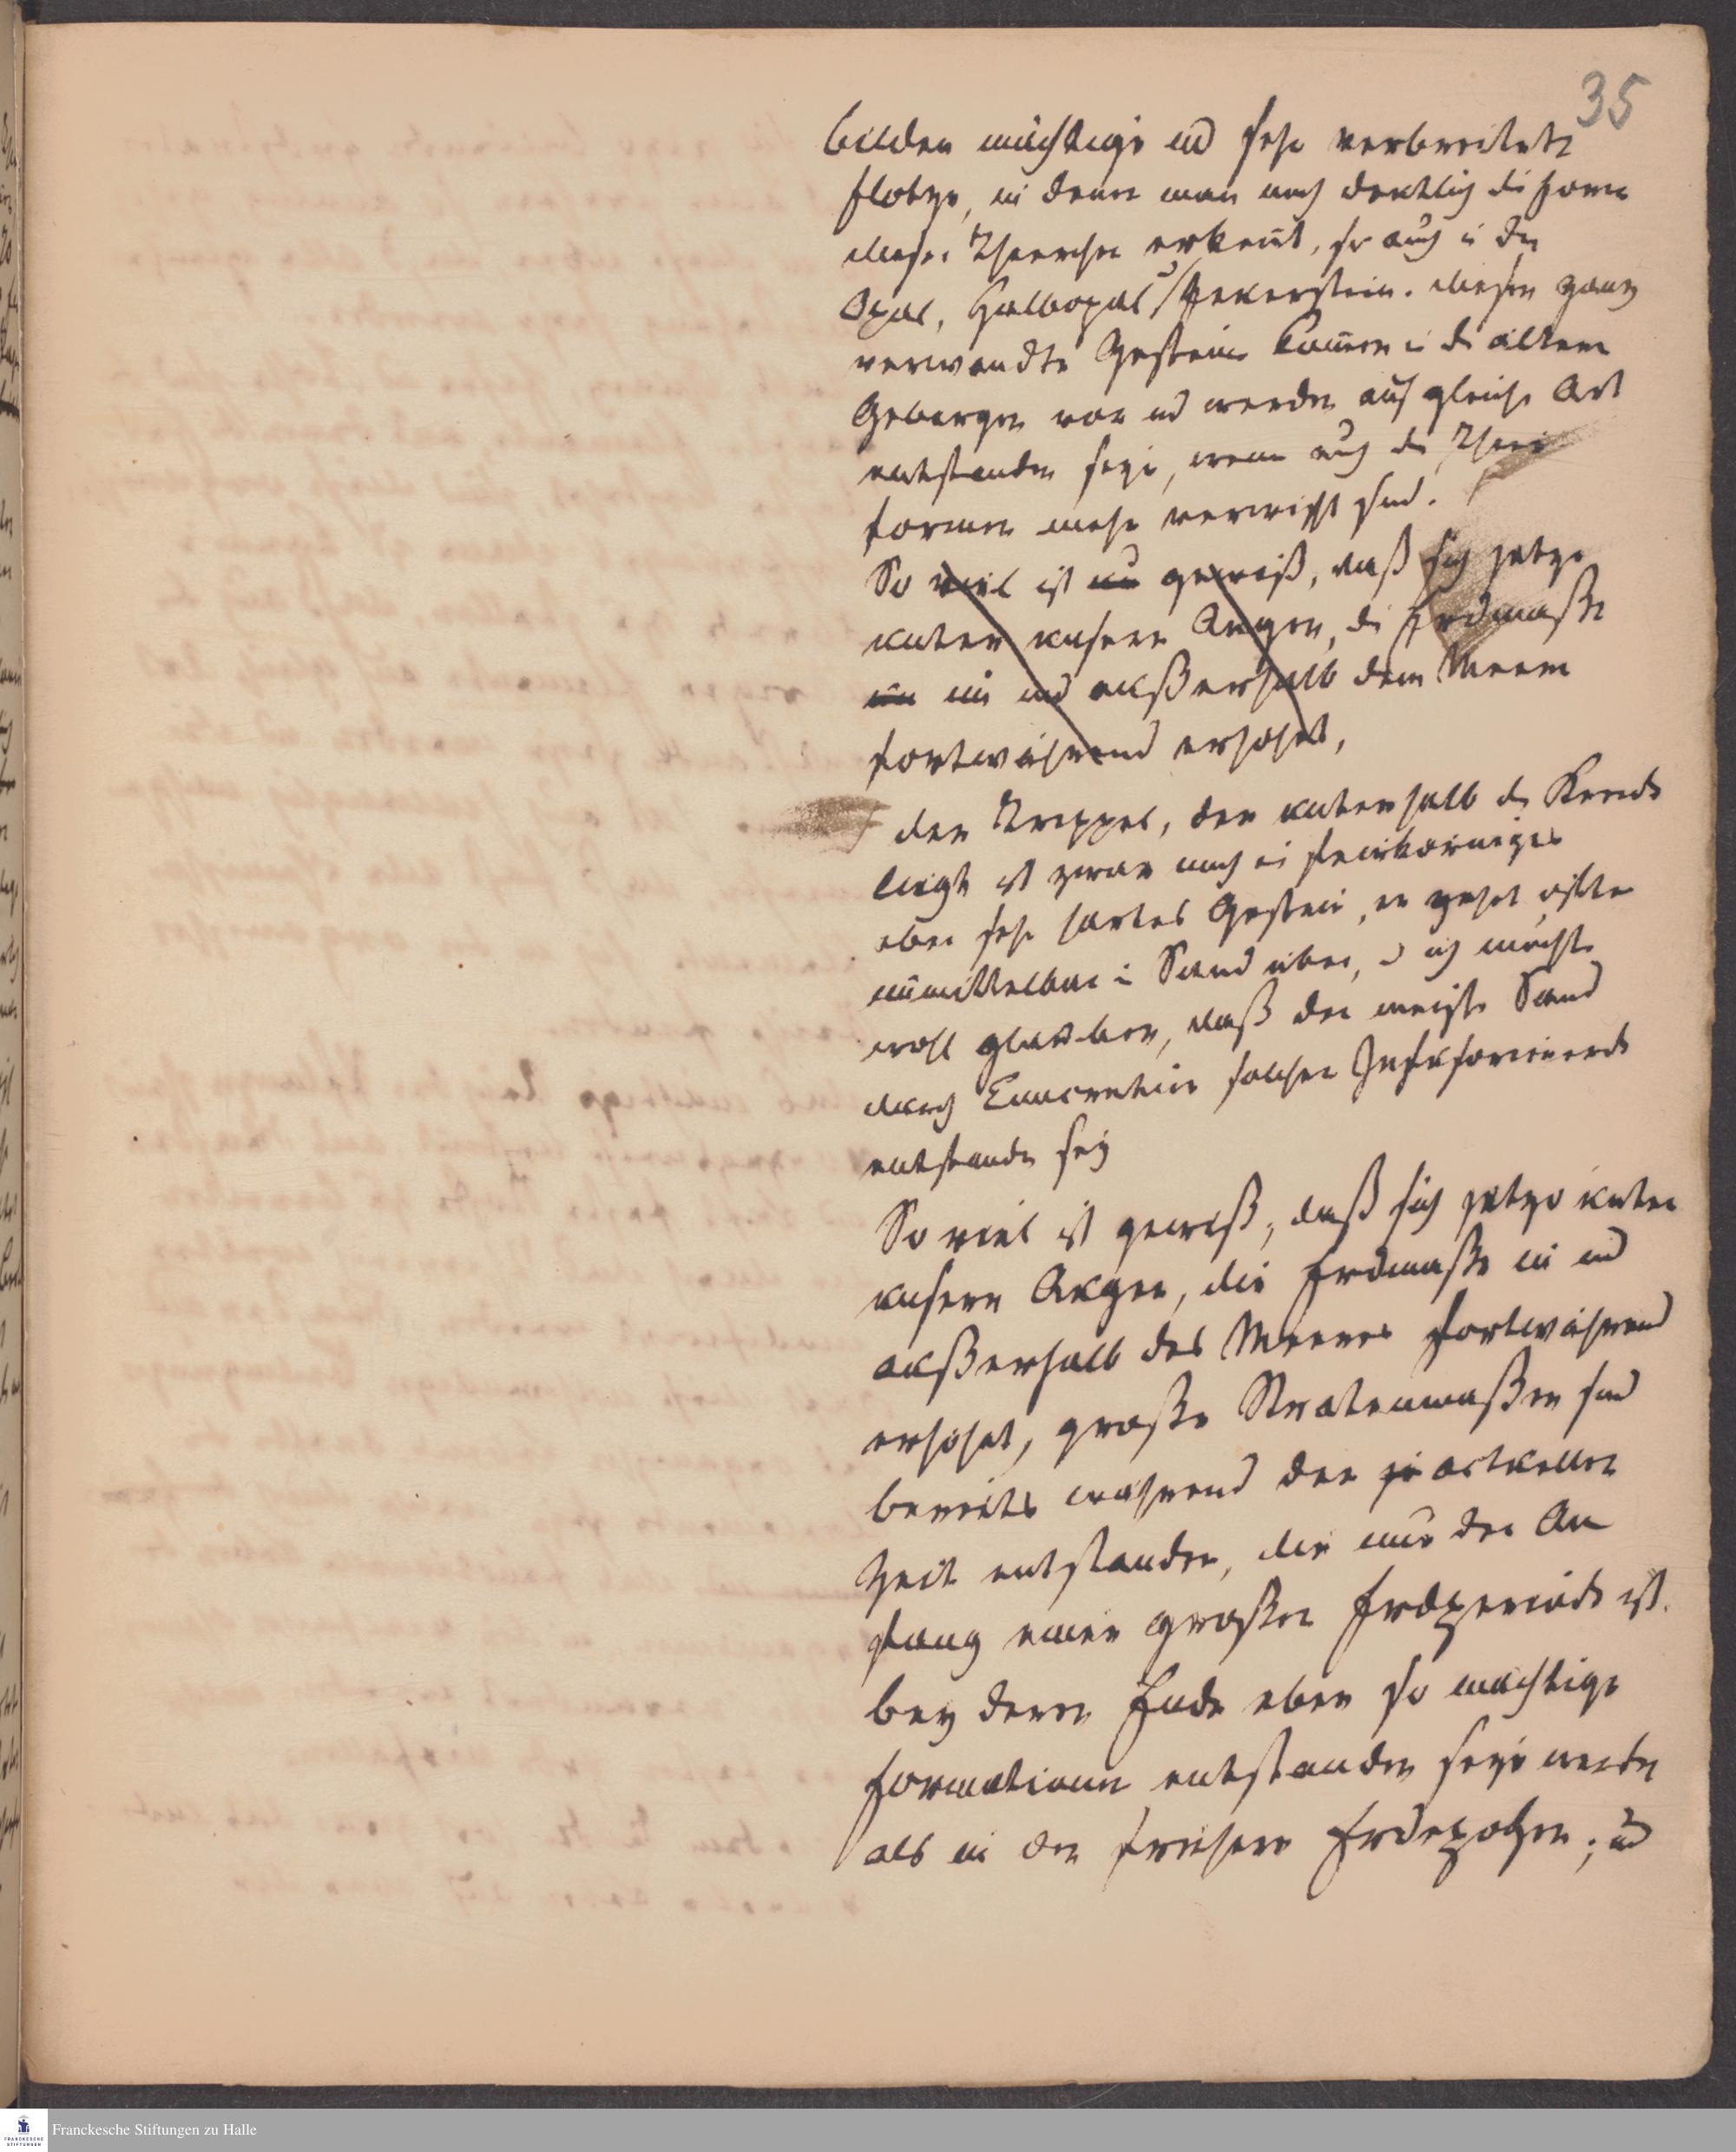 35
bilden mächtige und sehr verbreitete
flötze, in denen man noch deutlich die Formen
dieser Thierchen erkennt, so auch in den
Opal, Halbopal,
verwandte Gesteine kommen in den ältern
Gebirgen vor und werden auf gleiche Art
entstanden seyn, wenn auch die Thier
formen mehr verwischt sind.
So viel ist nun gewiß, daß sich jetzo
unter unsern Augen, die Erdmaße
in und außerhalb dem Meere
fortwährend erhöhet,
der Trippel, der unterhalb der Kreide
liegt ist zwar noch ein feinkörniges
aber sehr hartes Gestein, er gehet öfter
unmittelbar in Sand über, u ich möchte
wohl glauben, daß der meiste Sand
durch solcher
entstanden sey
So viel ist gewiß, daß sich jetzo unter
unsern Augen, die Erdmaße in und
außerhalb des Meeres fortwährend
erhöhet, große maßen sind
bereits während der actuellen
Zeit entstanden, die nur der An
fang einer großen Erdperiode ist.
bey deren Ende eben so mächtige
formationen entstanden seyn werden
als in den frühern Erdepochen; und
Franckesche Stiftungen zu Halle
FRANCKESCHE
STIFTUNGEN